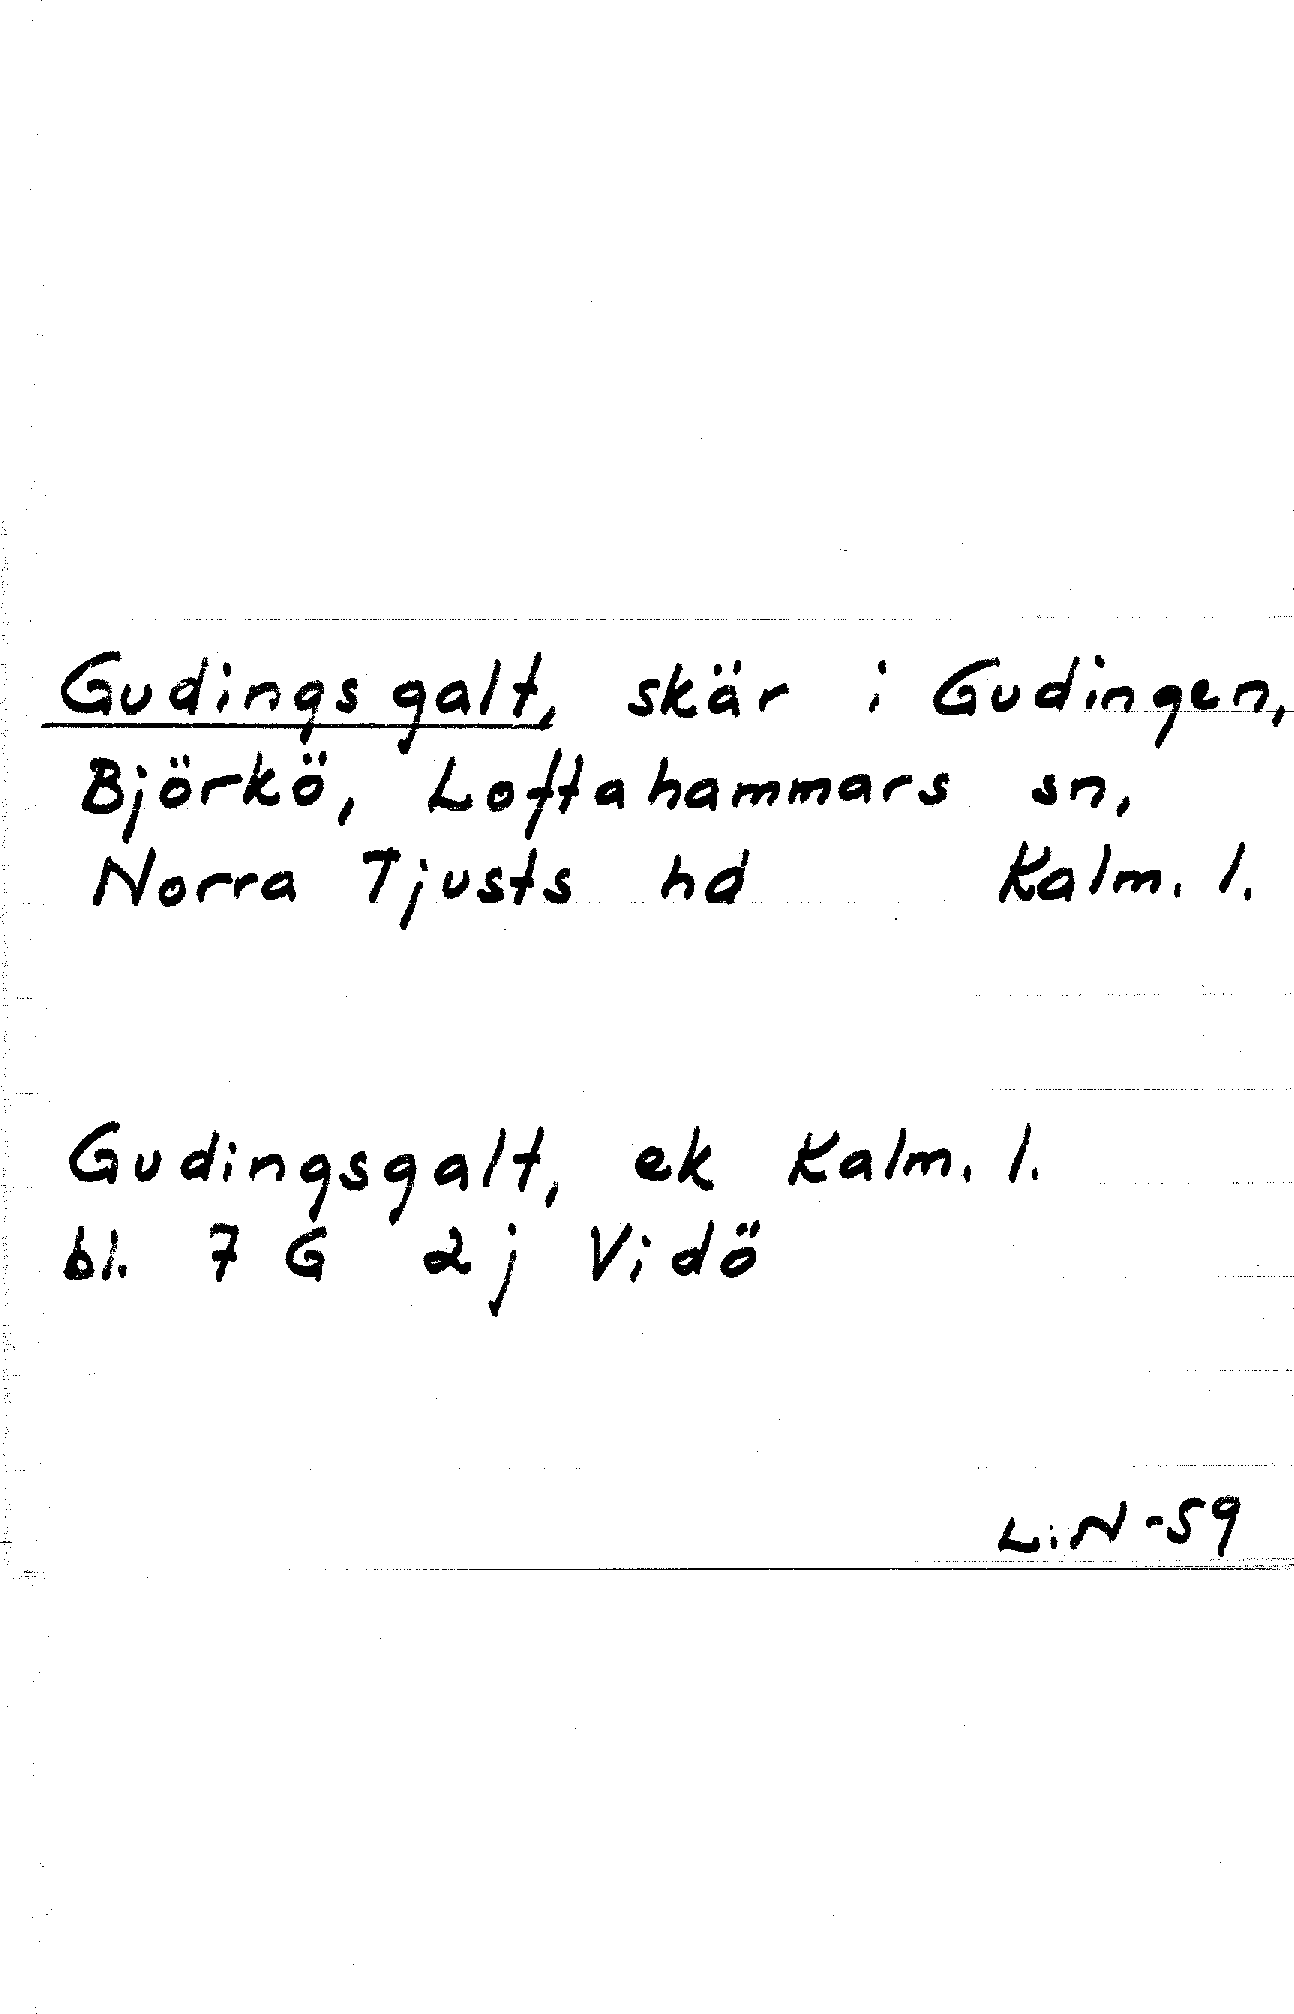 Gudingsgalt, skär i Gudingen,
Björkö, Loftahammars sn,
Norra Tjusts hd Kalm. l.
Gudingsgalt, ek Kalm. l.
bl. 7 G 2j Vidö
L:N -59